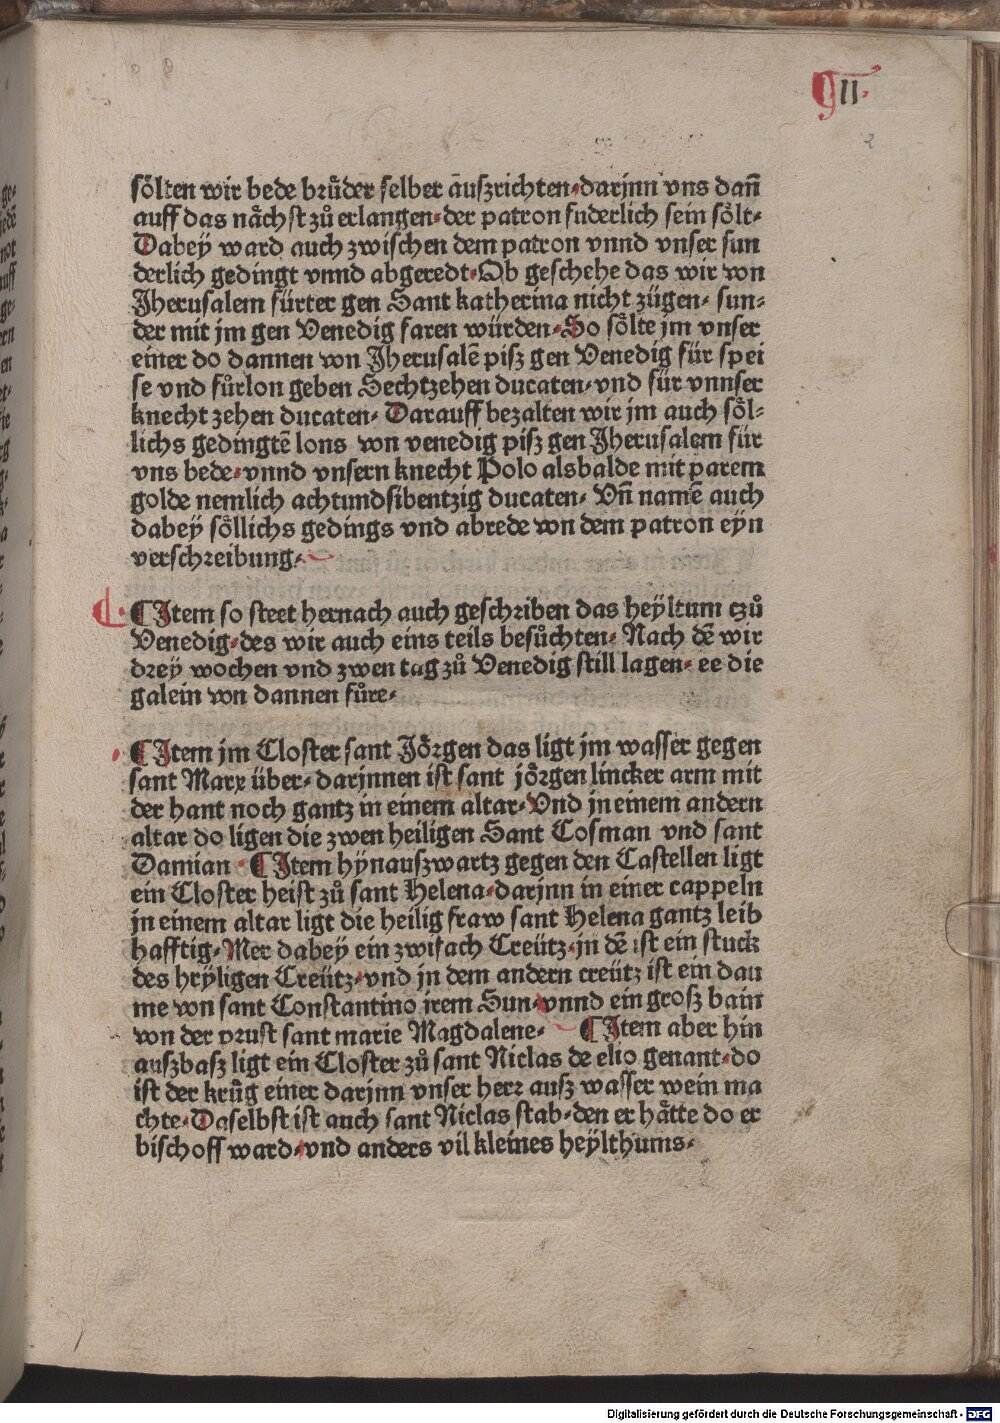 II
2
sölten wir bede brüder selber auszrichten·darjnn vns dan̄
auff das nächst zů erlangen·der patron fuderlich sein sölt·
Dabey ward auch zwischen dem patron vnnd vnser sun
derlich gedingt vnnd abgeredt·Ob geschehe das wir von
Jherusalem fürter gen Sant katherina nicht zügen· sun⸗
der mit jm gen Venedig faren würden·So sölte jm vnser
einer do dannen von Jherusalē pisz gen Venedig für spei
se vnd fůrlon geben Sechtzehen ducaten·vnd für vnnser
knecht zehen ducaten· Darauff bezalten wir jm auch söl⸗
lichs gedingtē lons von venedig pisz gen Jherusalem für
vns bede·vnnd vnsern knecht Polo alsbalde mit parem
golde nemlich achtundsibentzig ducaten· Vn̄ namē auch
dabey söllichs gedings vnd abrede von dem patron eyn
verschreibung·
¶Item so steet hernach auch geschriben das heyltum tzů
Venedig·des wir auch eins teils besůchten· Nach dē wir
drey wochen vnd zwen tag zů Venedig still lagen· ee die
galein von dannen fůre·
¶Item jm Closter sant Jörgen das ligt jm wasser gegen
sant Marx über· darjnnen ist sant jörgen lincker arm mit
der hant noch gantz in einem altar·Vnd jn einem andern
altar do ligen die zwen heiligen Sant Cosman vnd sant
Damian · ¶Item hynauszwartz gegen den Castellen ligt
ein Closter heist zů sant Helena·darjnn in einer cappeln
jn einem altar ligt die heilig fraw sant Helena gantz leib
hafftig·Mer dabey ein zwifach Creütz·jn dē ist ein stuck
des heyligen Creütz·vnd jn dem andern creütz ist ein dau
me von sant Constantino jrem Sun·vnnd ein grosz bain
von der prust sant marie Magdalene· ¶Item aber hin
auszbasz ligt ein Closter zů sant Niclas de elio genant·do
ist der krůg einer darjnn vnser herr ausz wasser wein ma
chte·Daselbst ist auch sant Niclas stab·den er hätte do er
bischoff ward·vnd anders vil kleines heylthums·
Digitalisierung gefördert durch die Deutsche Forschungsgemeinschaft - DFG